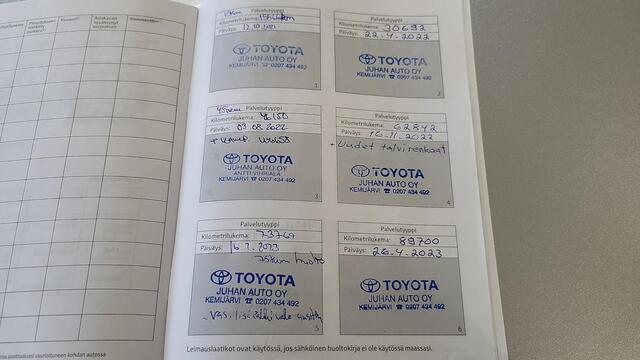 Palvelutyyppi
15tkm
Kilometrilukema:
Päiväys: 12.10.2021
TOYOTA
JUHAN AUTO OY
KEMIJÄRVI ☎ 0207 434 492
1
Palvelutyyppi
Kilometrilukema: 30692
Päiväys: 22.4.2022
TOYOTA
JUHAN AUTO OY
KEMIJÄRVI ☎ 0207 434 492
2
Palvelutyyppi
45tkm
Kilometrilukema: 46150
Päiväys: 03.08.2022
TOYOTA
JUHAN AUTO OY
ANTTI VIHRIÄLÄ
KEMIJÄRVI ☎ 0207 434 492
3
Palvelutyyppi
Kilometrilukema: 62842
Päiväys: 16.11.2022
+ Uudet talvirenkaat
TOYOTA
JUHAN AUTO OY
KEMIJÄRVI ☎ 0207 434 492
4
Palvelutyyppi
Kilometrilukema: 73767
Päiväys: 16.2.2023
75tkm huolto
TOYOTA
JUHAN AUTO OY
KEMIJÄRVI ☎ 0207 434 492
5
Palvelutyyppi
Kilometrilukema: 89700
Päiväys: 26.4.2023
TOYOTA
JUHAN AUTO OY
KEMIJÄRVI ☎ 0207 434 492
6
Leimauslaatikot ovat käytössä, jos sähköinen huoltokirja ei ole käytössä maassasi.